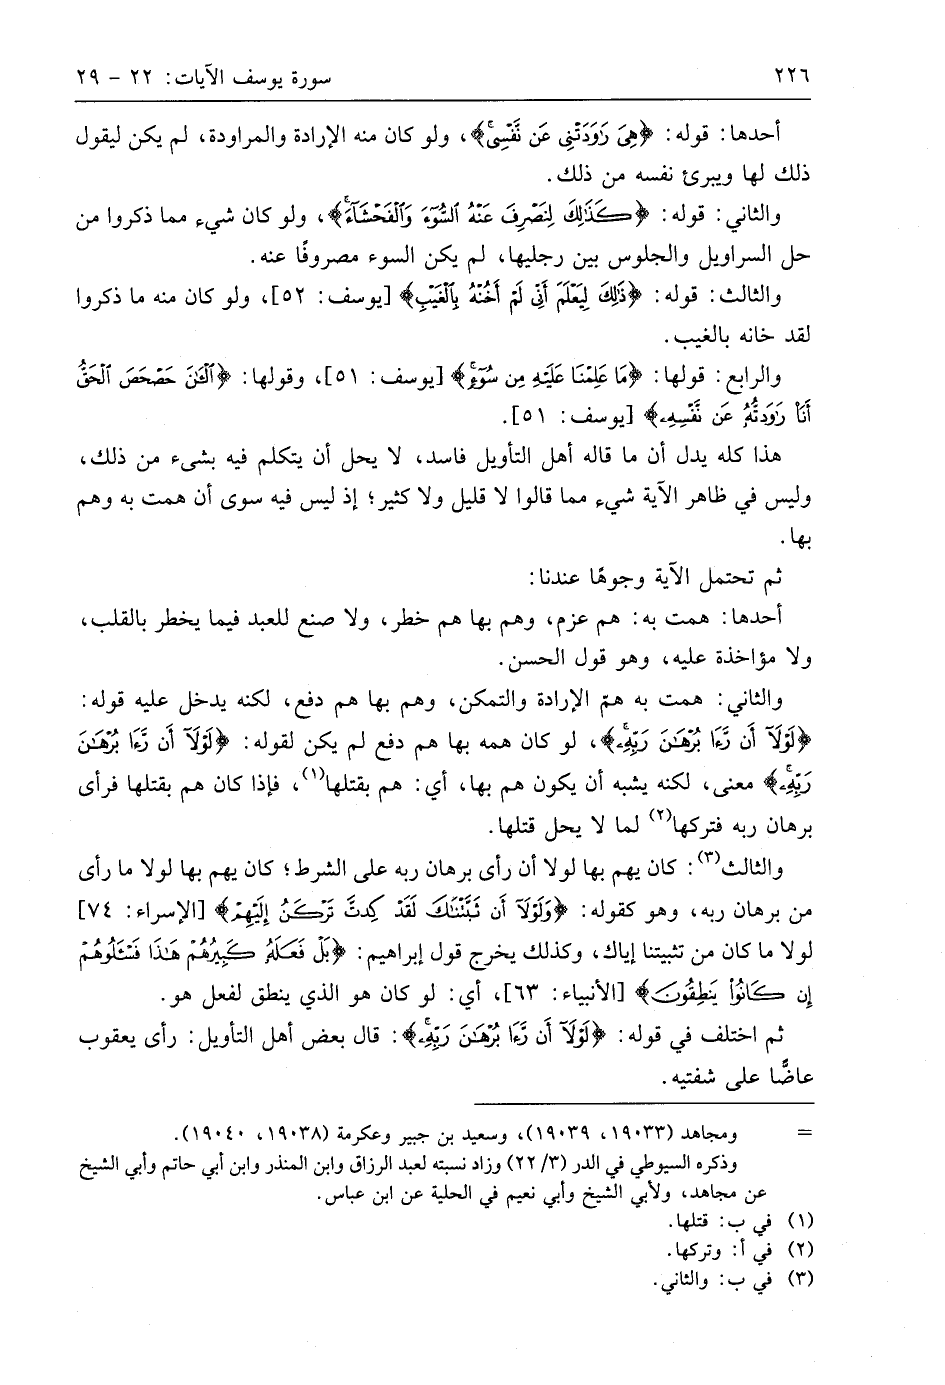 ٢٢٦ سورة يوسف الآيات: ٢٢ - ٢٩
أحدها: قوله: ﴿هِىَ رَٰوَدَتْنِى عَن نَّفْسِىۚ﴾، ولو كان منه الإرادة والمراودة، لم يكن ليقول
ذلك لها ويبرئ نفسه من ذلك.
والثاني: قوله: ﴿كَذَٰلِكَ لِنَصْرِفَ عَنْهُ ٱلسُّوٓءَ وَٱلْفَحْشَآءَۚ﴾، ولو كان شيء مما ذكروا من
حل السراويل والجلوس بين رجليها، لم يكن السوء مصروفًا عنه.
والثالث: قوله: ﴿ذَٰلِكَ لِيَعْلَمَ أَنِّى لَمْ أَخُنْهُ بِٱلْغَيْبِ﴾ [يوسف: ٥٢]، ولو كان منه ما ذكروا
لقد خانه بالغيب.
والرابع: قولها: ﴿مَا عَلِمْنَا عَلَيْهِ مِن سُوٓءٍۚ﴾ [يوسف: ٥١]، وقولها: ﴿ٱلْـَٰٔنَ حَصْحَصَ ٱلْحَقُّ
أَنَا۠ رَٰوَدتُّهُۥ عَن نَّفْسِهِۦ﴾ [يوسف: ٥١].
هذا كله يدل أن ما قاله أهل التأويل فاسد، لا يحل أن يتكلم فيه بشيء من ذلك،
وليس في ظاهر الآية شيء مما قالوا لا قليل ولا كثير؛ إذ ليس فيه سوى أن همت به وهم
بها.
ثم تحتمل الآية وجوهًا عندنا:
أحدها: همت به: هم عزم، وهم بها هم خطر، ولا صنع للعبد فيما يخطر بالقلب،
ولا مؤاخذة عليه، وهو قول الحسن.
والثاني: همت به همّ الإرادة والتمكن، وهم بها هم دفع، لكنه يدخل عليه قوله:
﴿لَوْلَآ أَن رَّءَا بُرْهَٰنَ رَبِّهِۦۚ﴾، لو كان همه بها هم دفع لم يكن لقوله: ﴿لَوْلَآ أَن رَّءَا بُرْهَٰنَ
رَبِّهِۦۚ﴾ معنى، لكنه يشبه أن يكون هم بها، أي: هم بقتلها(١)، فإذا كان هم بقتلها فرأى
برهان ربه فتركها(٢) لما لا يحل قتلها.
والثالث(٣): كان يهم بها لولا أن رأى برهان ربه على الشرط؛ كان يهم بها لولا ما رأى
من برهان ربه، وهو كقوله: ﴿وَلَوْلَآ أَن ثَبَّتْنَٰكَ لَقَدْ كِدتَّ تَرْكَنُ إِلَيْهِمْ﴾ [الإسراء: ٧٤]
لولا ما كان من تثبيتنا إياك، وكذلك يخرج قول إبراهيم: ﴿بَلْ فَعَلَهُۥ كَبِيرُهُمْ هَٰذَا فَسْـَٔلُوهُمْ
إِن كَانُوا۟ يَنطِقُونَ﴾ [الأنبياء: ٦٣]، أي: لو كان هو الذي ينطق لفعل هو.
ثم اختلف في قوله: ﴿لَوْلَآ أَن رَّءَا بُرْهَٰنَ رَبِّهِۦۚ﴾: قال بعض أهل التأويل: رأى يعقوب
عاضًّا على شفتيه.
= ومجاهد (١٩٠٣٣، ١٩٠٣٩)، وسعيد بن جبير وعكرمة (١٩٠٣٨، ١٩٠٤٠).
وذكره السيوطي في الدر (٣/ ٢٢) وزاد نسبته لعبد الرزاق وابن المنذر وابن أبي حاتم وأبي الشيخ
عن مجاهد، ولأبي الشيخ وأبي نعيم في الحلية عن ابن عباس.
(١) في ب: قتلها.
(٢) في أ: وتركها.
(٣) في ب: والثاني.